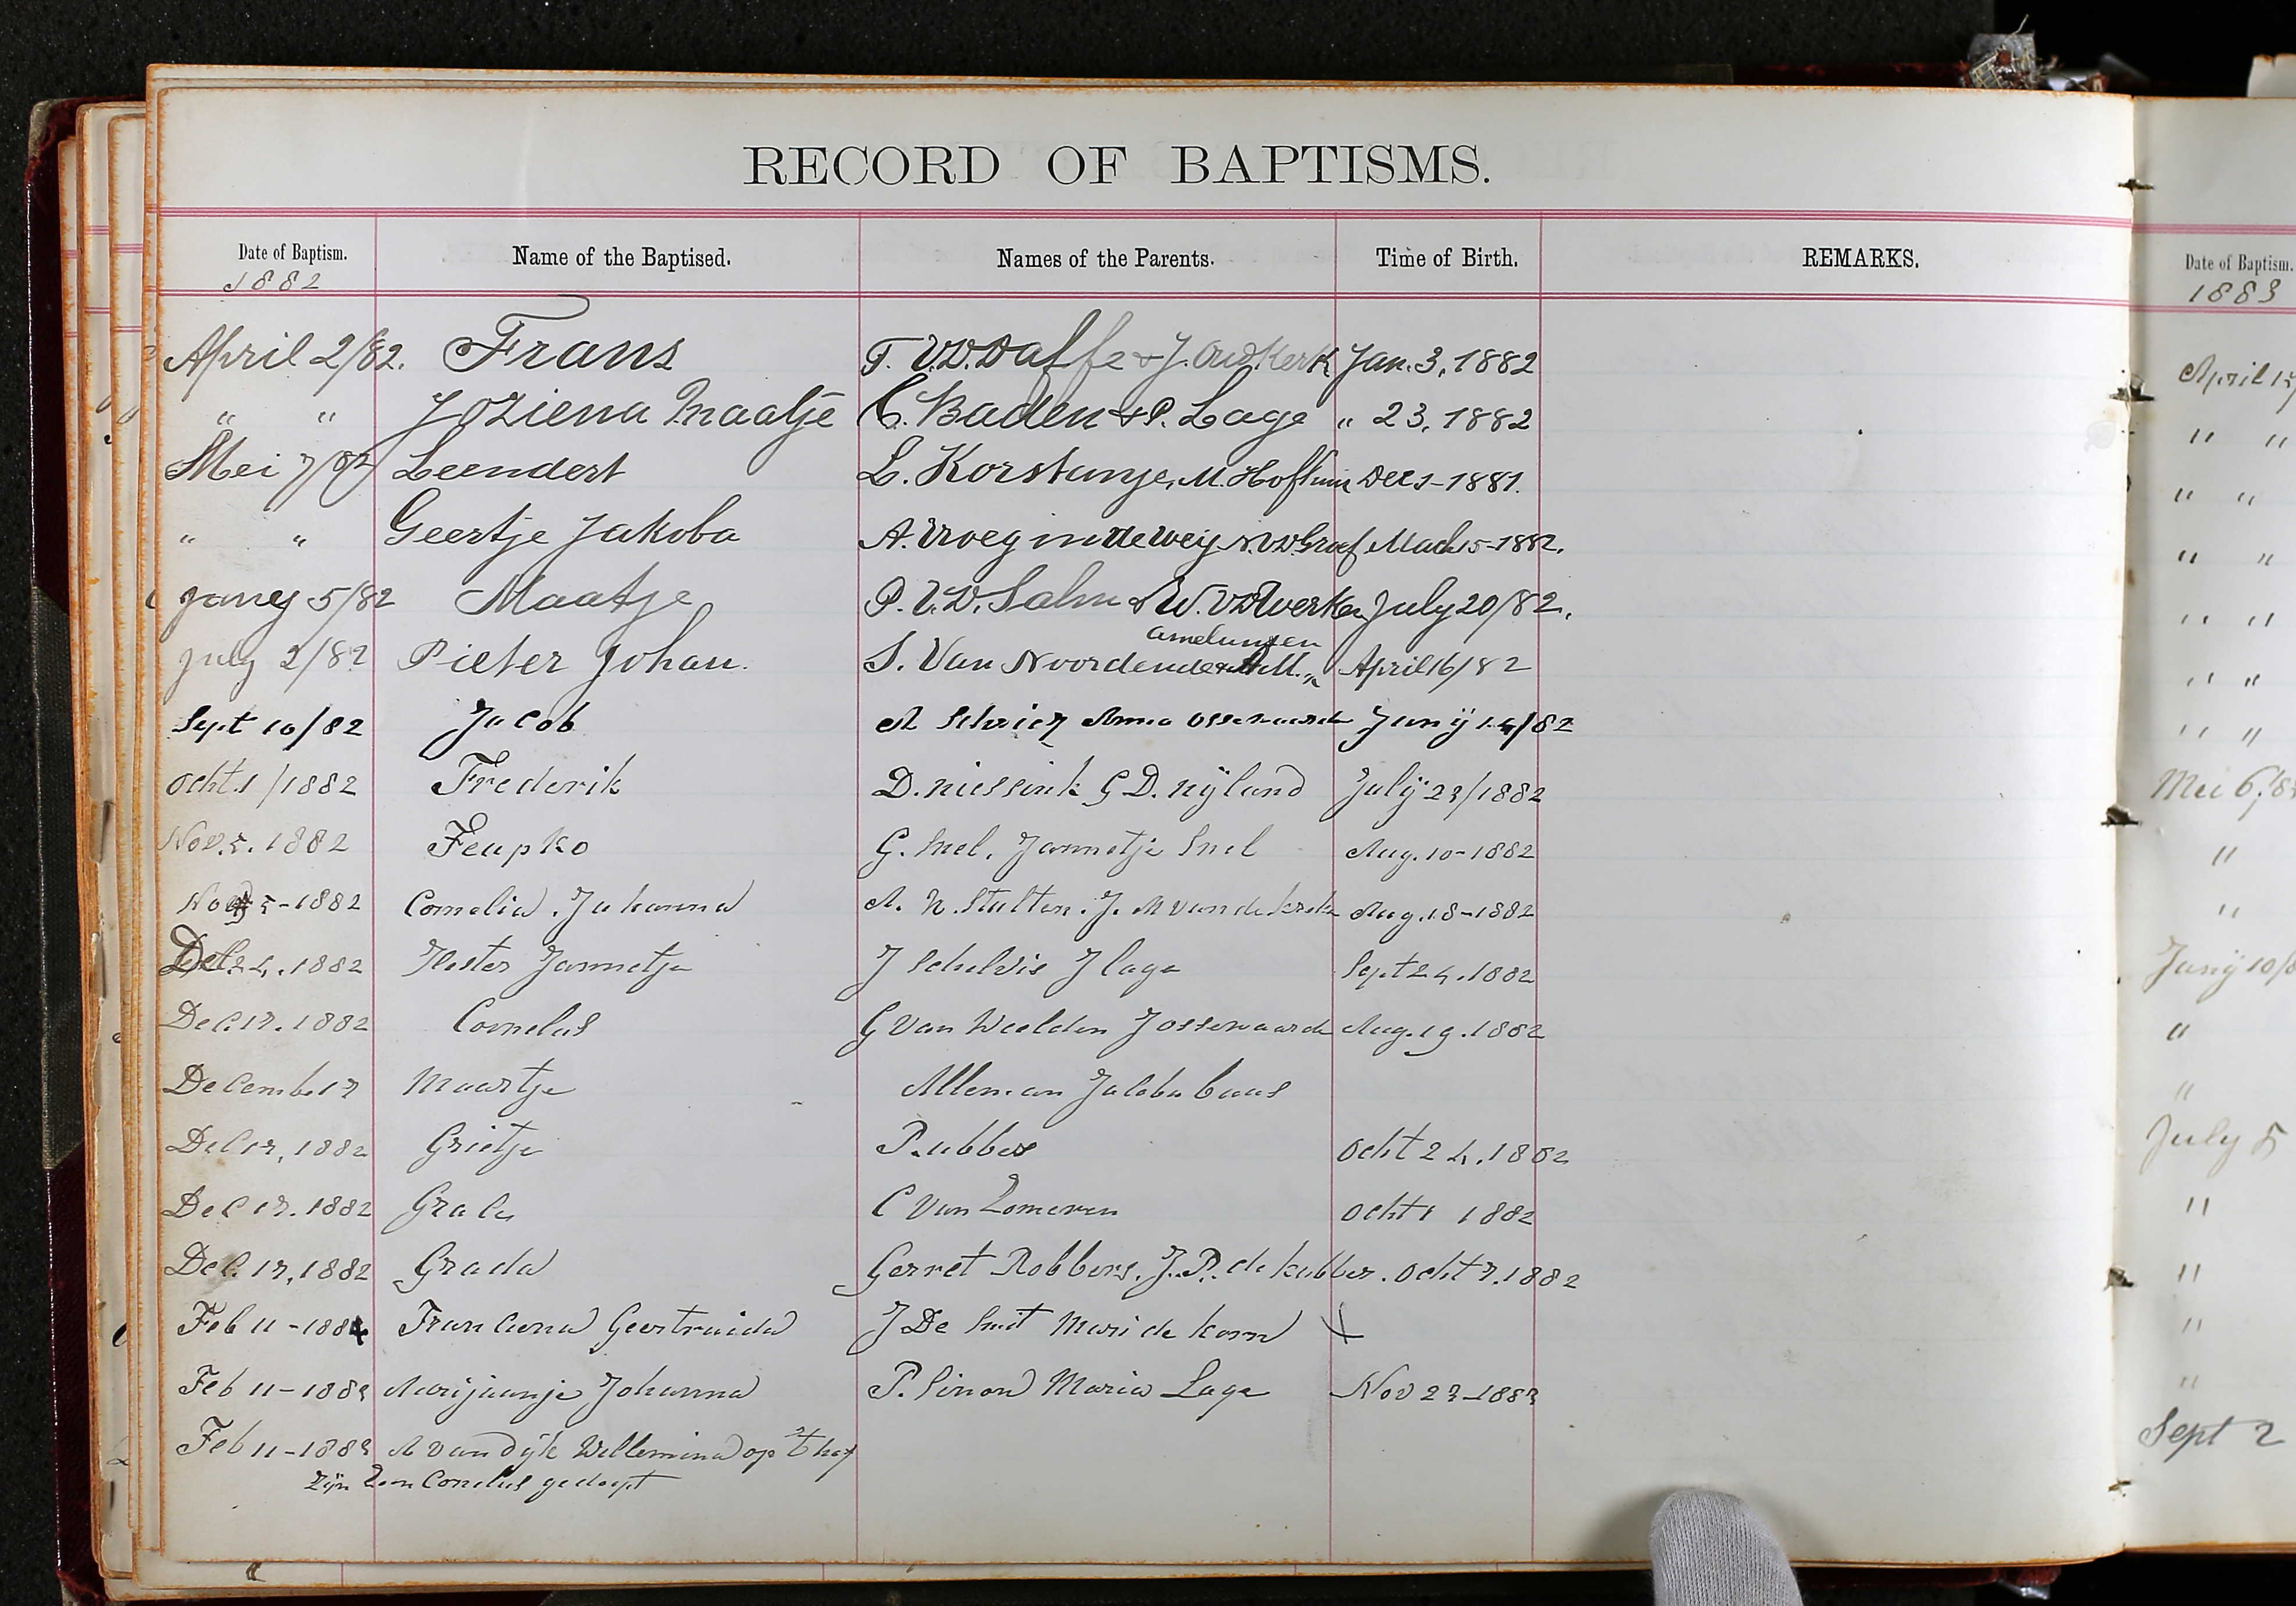 RECORD OF BAPTISMS.
Date of Baptism. Name of the Baptised. Names of the Parents. Time of Birth. REMARKS.
1882
April 2/82. Frans T. V.D. Daffe & J. Oudkerk Jan. 3, 1882
" " Joziena Maatje C. Baden & P. Lage " 23, 1882
Mei 7/82 Leendert L. Korstunje, M. Hofman Dec 1-1881.
" " Geertje Jakoba A. Vroegindewey N. v.d. Graaf Mach 15-1882.
Juney 5/82 Maatje P. V.D. Salm & W. v.d. Werken July 20/82.
Amelunxen
July 2/82 Pieter Johan. S. Van Noordende & M. " April 16/82
Sept 10/82 Jacob A Schriez Anna Ossewaarde Junij 14/82
Ocht. 1/1882 Frederik D. niessink G D. nijland Julij 23/1882
Nov. 5. 1882 Feupko G. Snel. Jannetje Snel Aug. 10-1882
Nov 5-1882 Cornelia. Johanna A. N. Stutten. J. M van de kreke Aug. 18-1882
Dec. 24. 1882 Hester Jannetje J Schelvis J Lage Sept 24. 1882
Dec. 17. 1882 Cornelus G Van Weelden J ossewaarde Aug. 19. 1882
Decemb. 17 Maartje Alleman Jacoba baas
Dec 17, 1882 Grietje P. ubbes Ocht 24. 1882
Dec 17. 1882 Grace C Van Zomeren Ocht 1 1882
Dec. 17, 1882 Grada Gerret Robbers. J. P. de kubber. Ocht 7. 1882
Feb 11-1884 Francuna Geertruida J De Smit Mari de korn
Feb 11-1883 Marijaanje Johanna P. Sinon Maria Lage Nov 23-1883
Feb 11-1883 A van dijk Willemina op 't hof
Zijn Zoon Cornelus gedoopt
Date of Baptism.
1883
April 15/
" "
" "
" "
" "
" "
" "
Mei 6/8
"
"
Junij 10/8
"
"
July 5
"
"
"
"
Sept 2